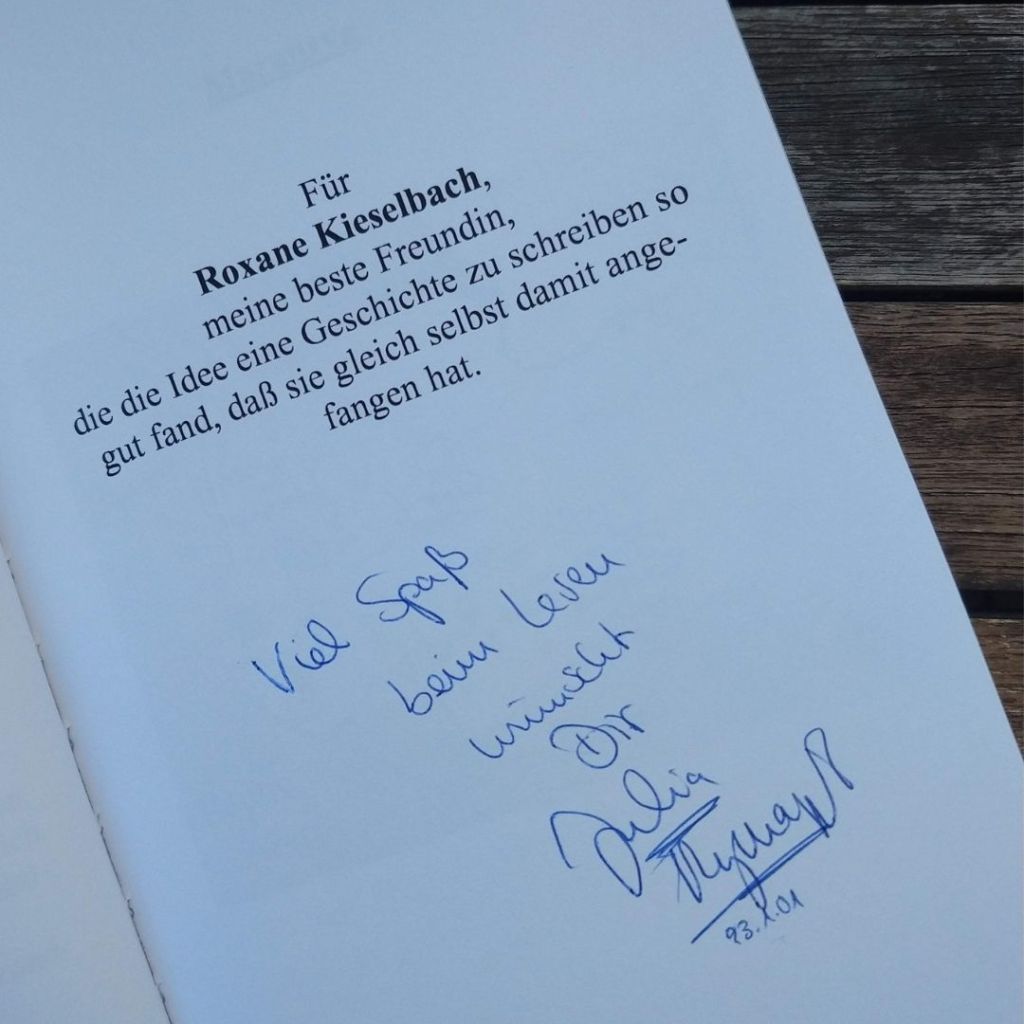 Für
Roxane Kieselbach,
meine beste Freundin,
die die Idee eine Geschichte zu schreiben so
gut fand, daß sie gleich selbst damit ange-
fangen hat.
Viel Spaß
beim Lesen
wünscht
Dir
Julia